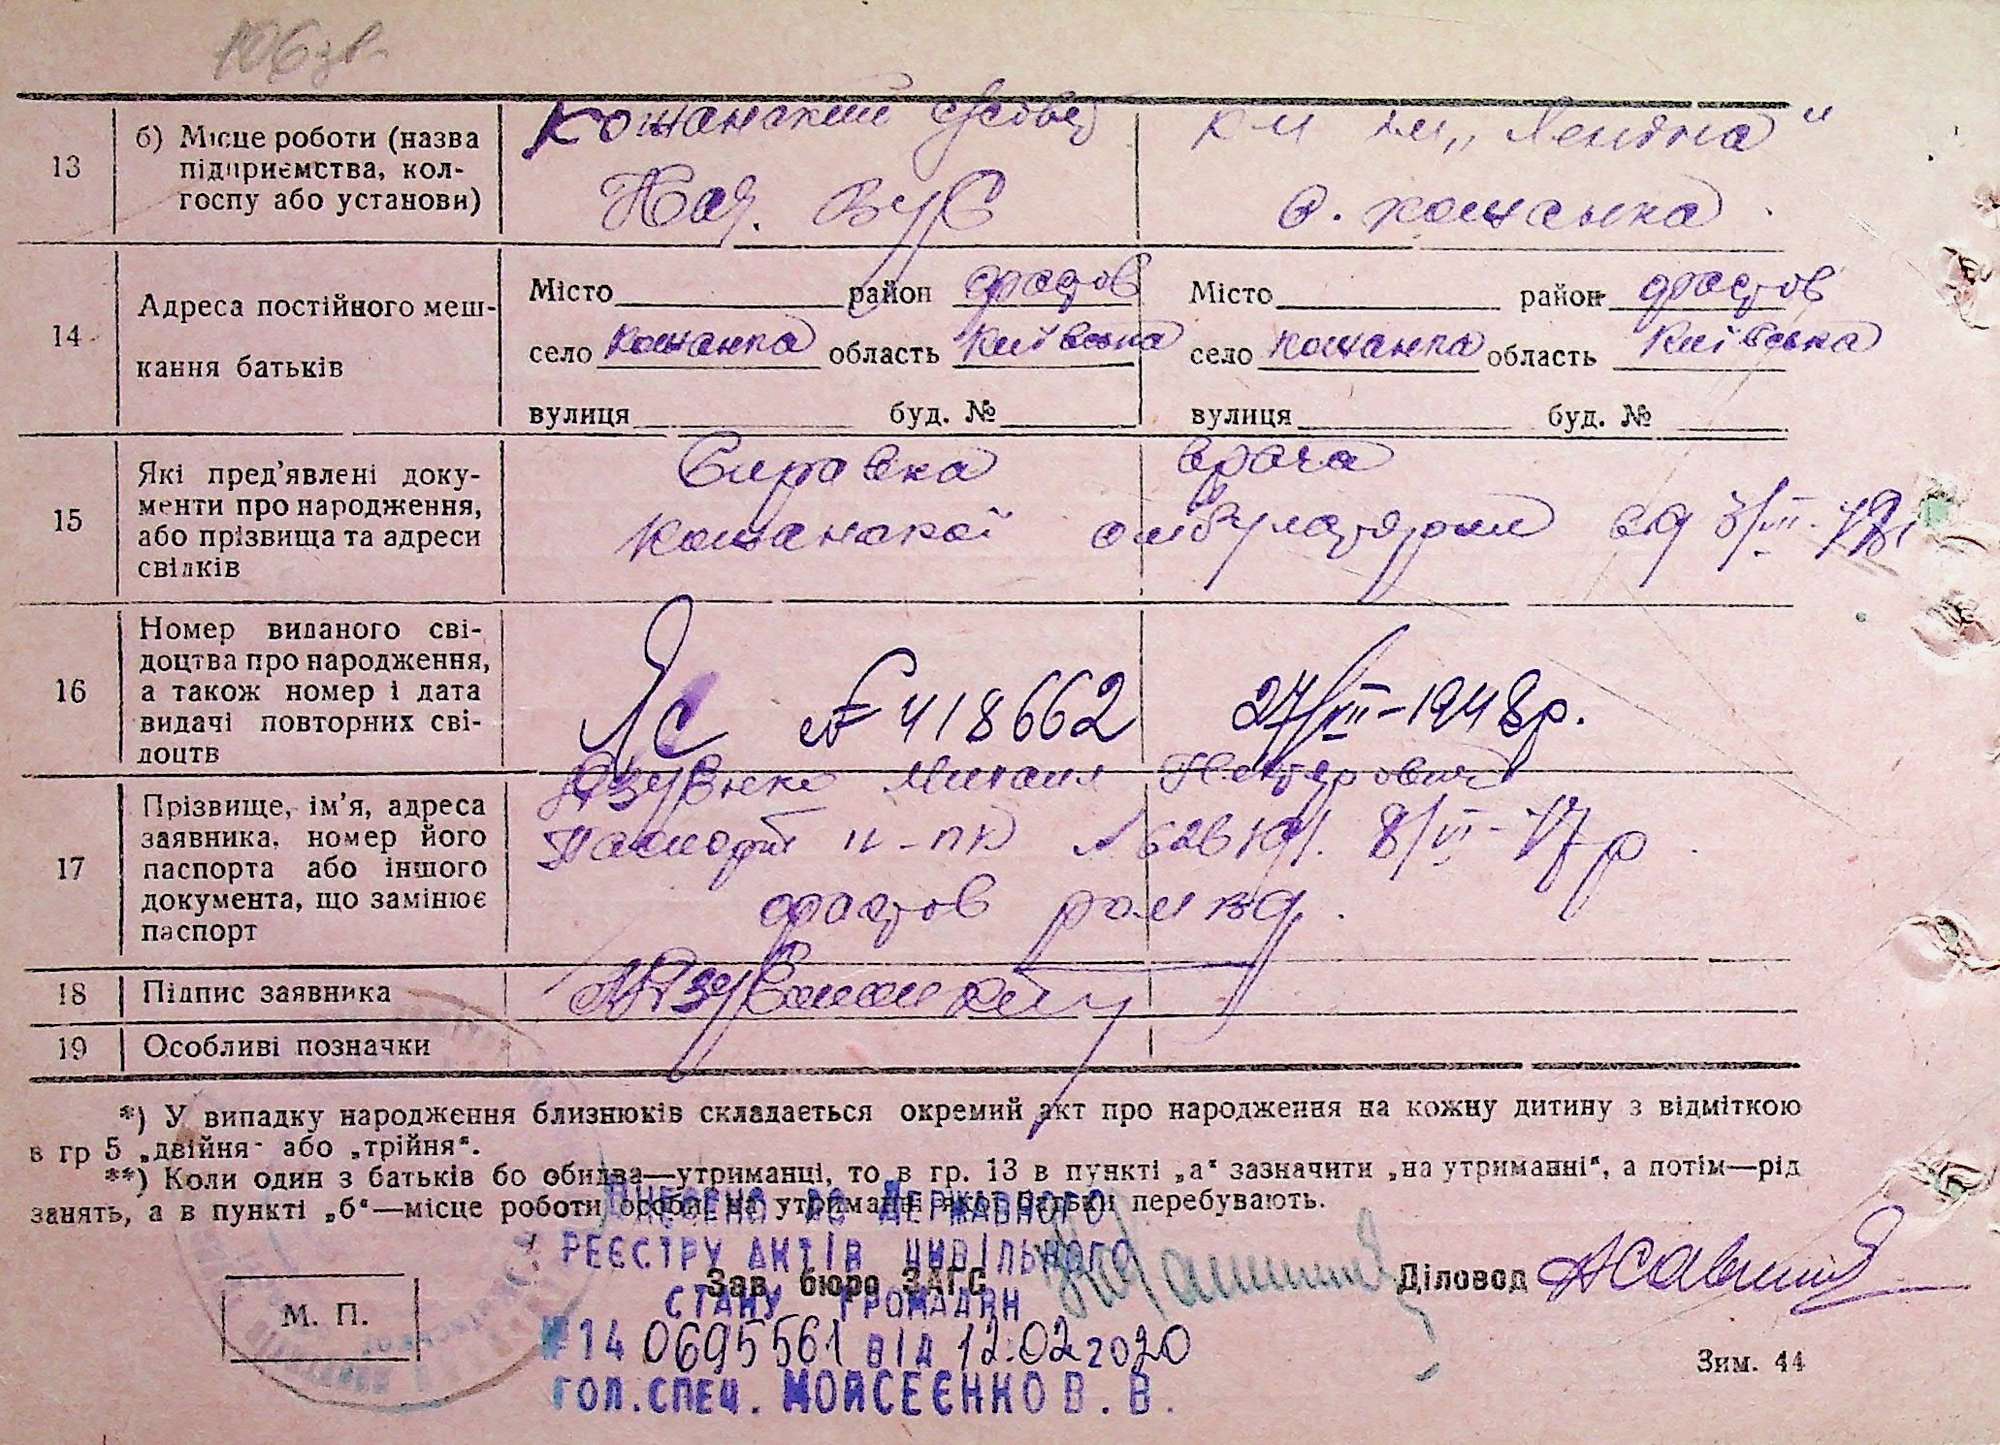 106 зв
13 б) Місце роботи (назва підприємства, колгоспу або установи)
Кощанский
Нач. ВУС
к-п ім „Леніна“
с. Кощанка
14 Адреса постійного мешкання батьків
Місто район Фастов Місто район Фастов
село Кощанка область Київська село Кощанка область Київська
вулиця буд. № вулиця буд. №
15 Які пред’явлені документи про народження, або прізвища та адреси свідків
Справка врача
Кощанской амбулатории
16 Номер виданого свідоцтва про народження, а також номер і дата видачі повторних свідоцтв
ЯС № 418662 27/VII-1948р.
17 Прізвище, ім’я, адреса заявника, номер його паспорта або іншого документа, що замінює паспорт
Михаил Нестерович
Паспорт
Фастов
18 Підпис заявника
19 Особливі позначки
*) У випадку народження близнюків складається окремий акт про народження на кожну дитину з відміткою
в гр 5 „двійня“ або „трійня“.
**) Коли один з батьків бо обидва—утриманці, то в гр. 13 в пункті „а“ зазначити „на утриманні“, а потім—рід
занять, а в пункті „б“—місце роботи особи, на утриманні якої батьки перебувають.
ВНЕСЕНО ДО ДЕРЖАВНОГО
РЕЄСТРУ АКТІВ ЦИВІЛЬНОГО
Зав. бюро ЗАГС Діловод
СТАНУ ГРОМАДЯН
М. П.
№ 14 0695561 ВІД 12.02 2020
Зим. 44
ГОЛ.СПЕЦ. МОЙСЕЄНКО В. В.